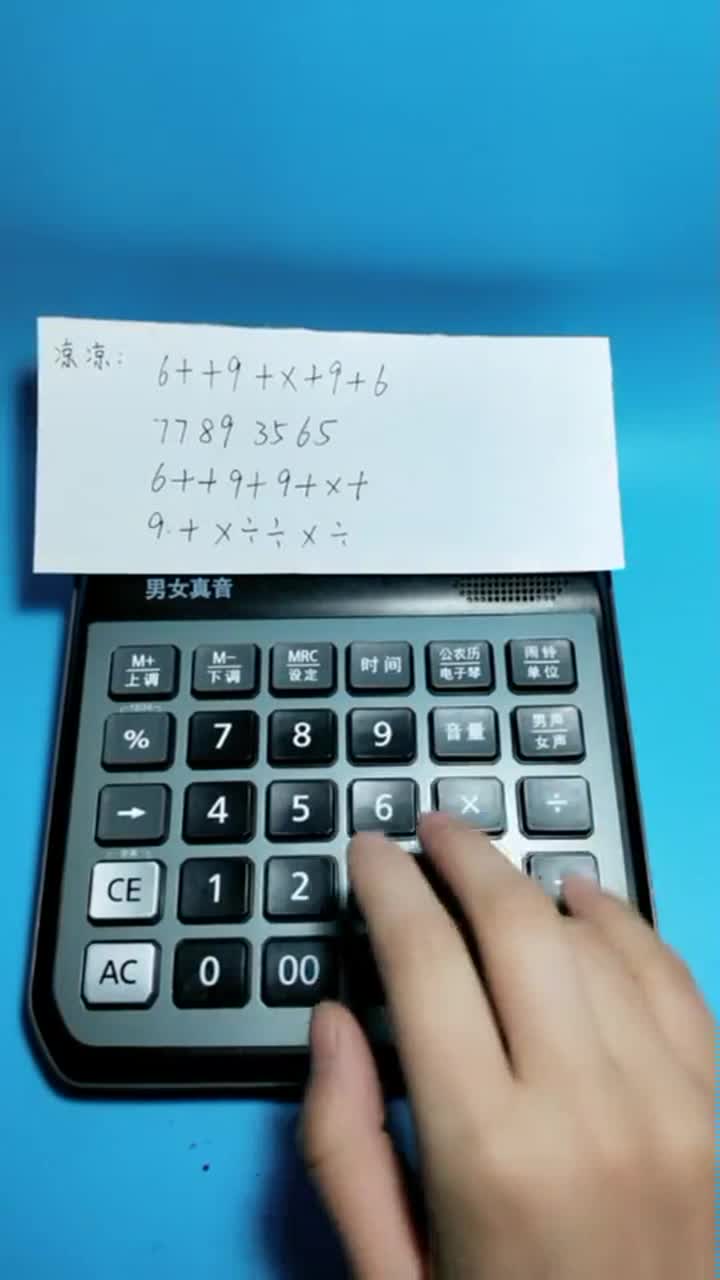 凉凉: 6++9+×+9+6
7789 3565
6++9+9+×+
9.+×÷÷×÷
男女真音
M+ 上调 M- 下调 MRC 设定 时间 公农历 电子琴 闹铃 单位
% 7 8 9 音量 男声 女声
→ 4 5 6 × ÷
CE 1 2
AC 0 00